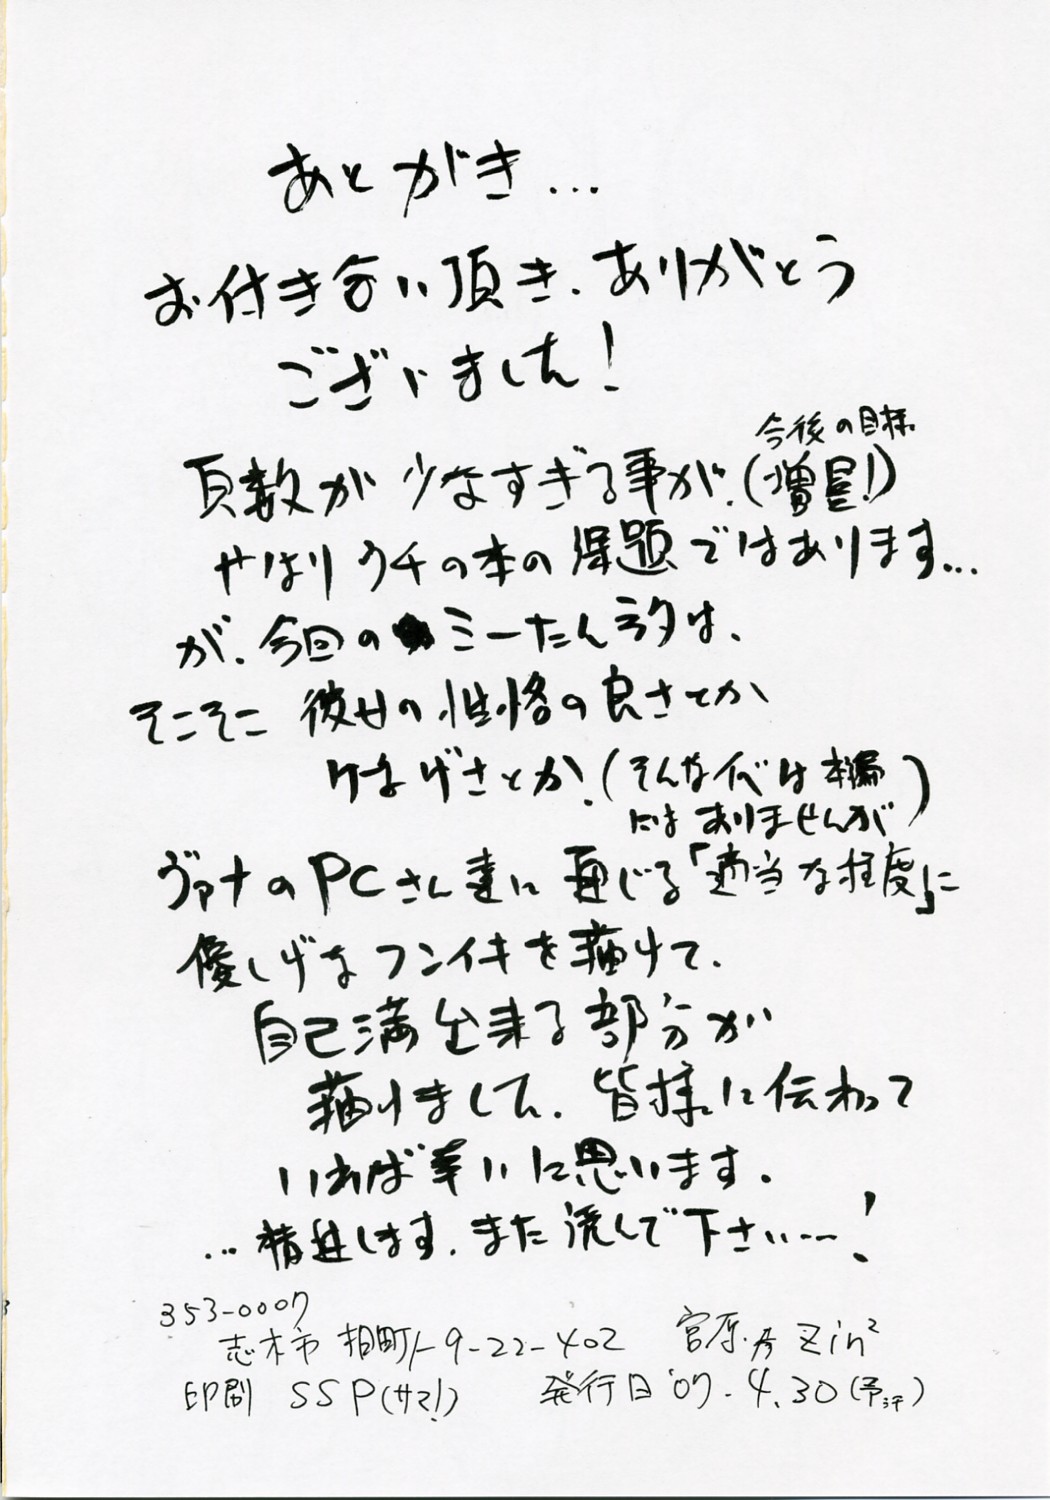 あとがき…
お付き合い頂き、ありがとう
ございました！
今後の目標
頁数が少なすぎる事が、(増量!)
やはりウチの本の課題ではあります…
が、今回のミーたんネタは、
そこそこ彼女の性格の良さとか
けなげさとか、(そんな代は本編
にはありませんが)
ヴァナのPCさん達に通じる「適当な程度」に
優しげなフンイキを描けて、
自己満出来る部分が
描けました、皆様に伝わって
いれば幸いに思います。
…精進します、また読んで下さい…!
353-0007
志木市柏町1-9-22-402 宮原 Zin²
印刷 SSP(サマ!) 発行日'07.4.30(予定)